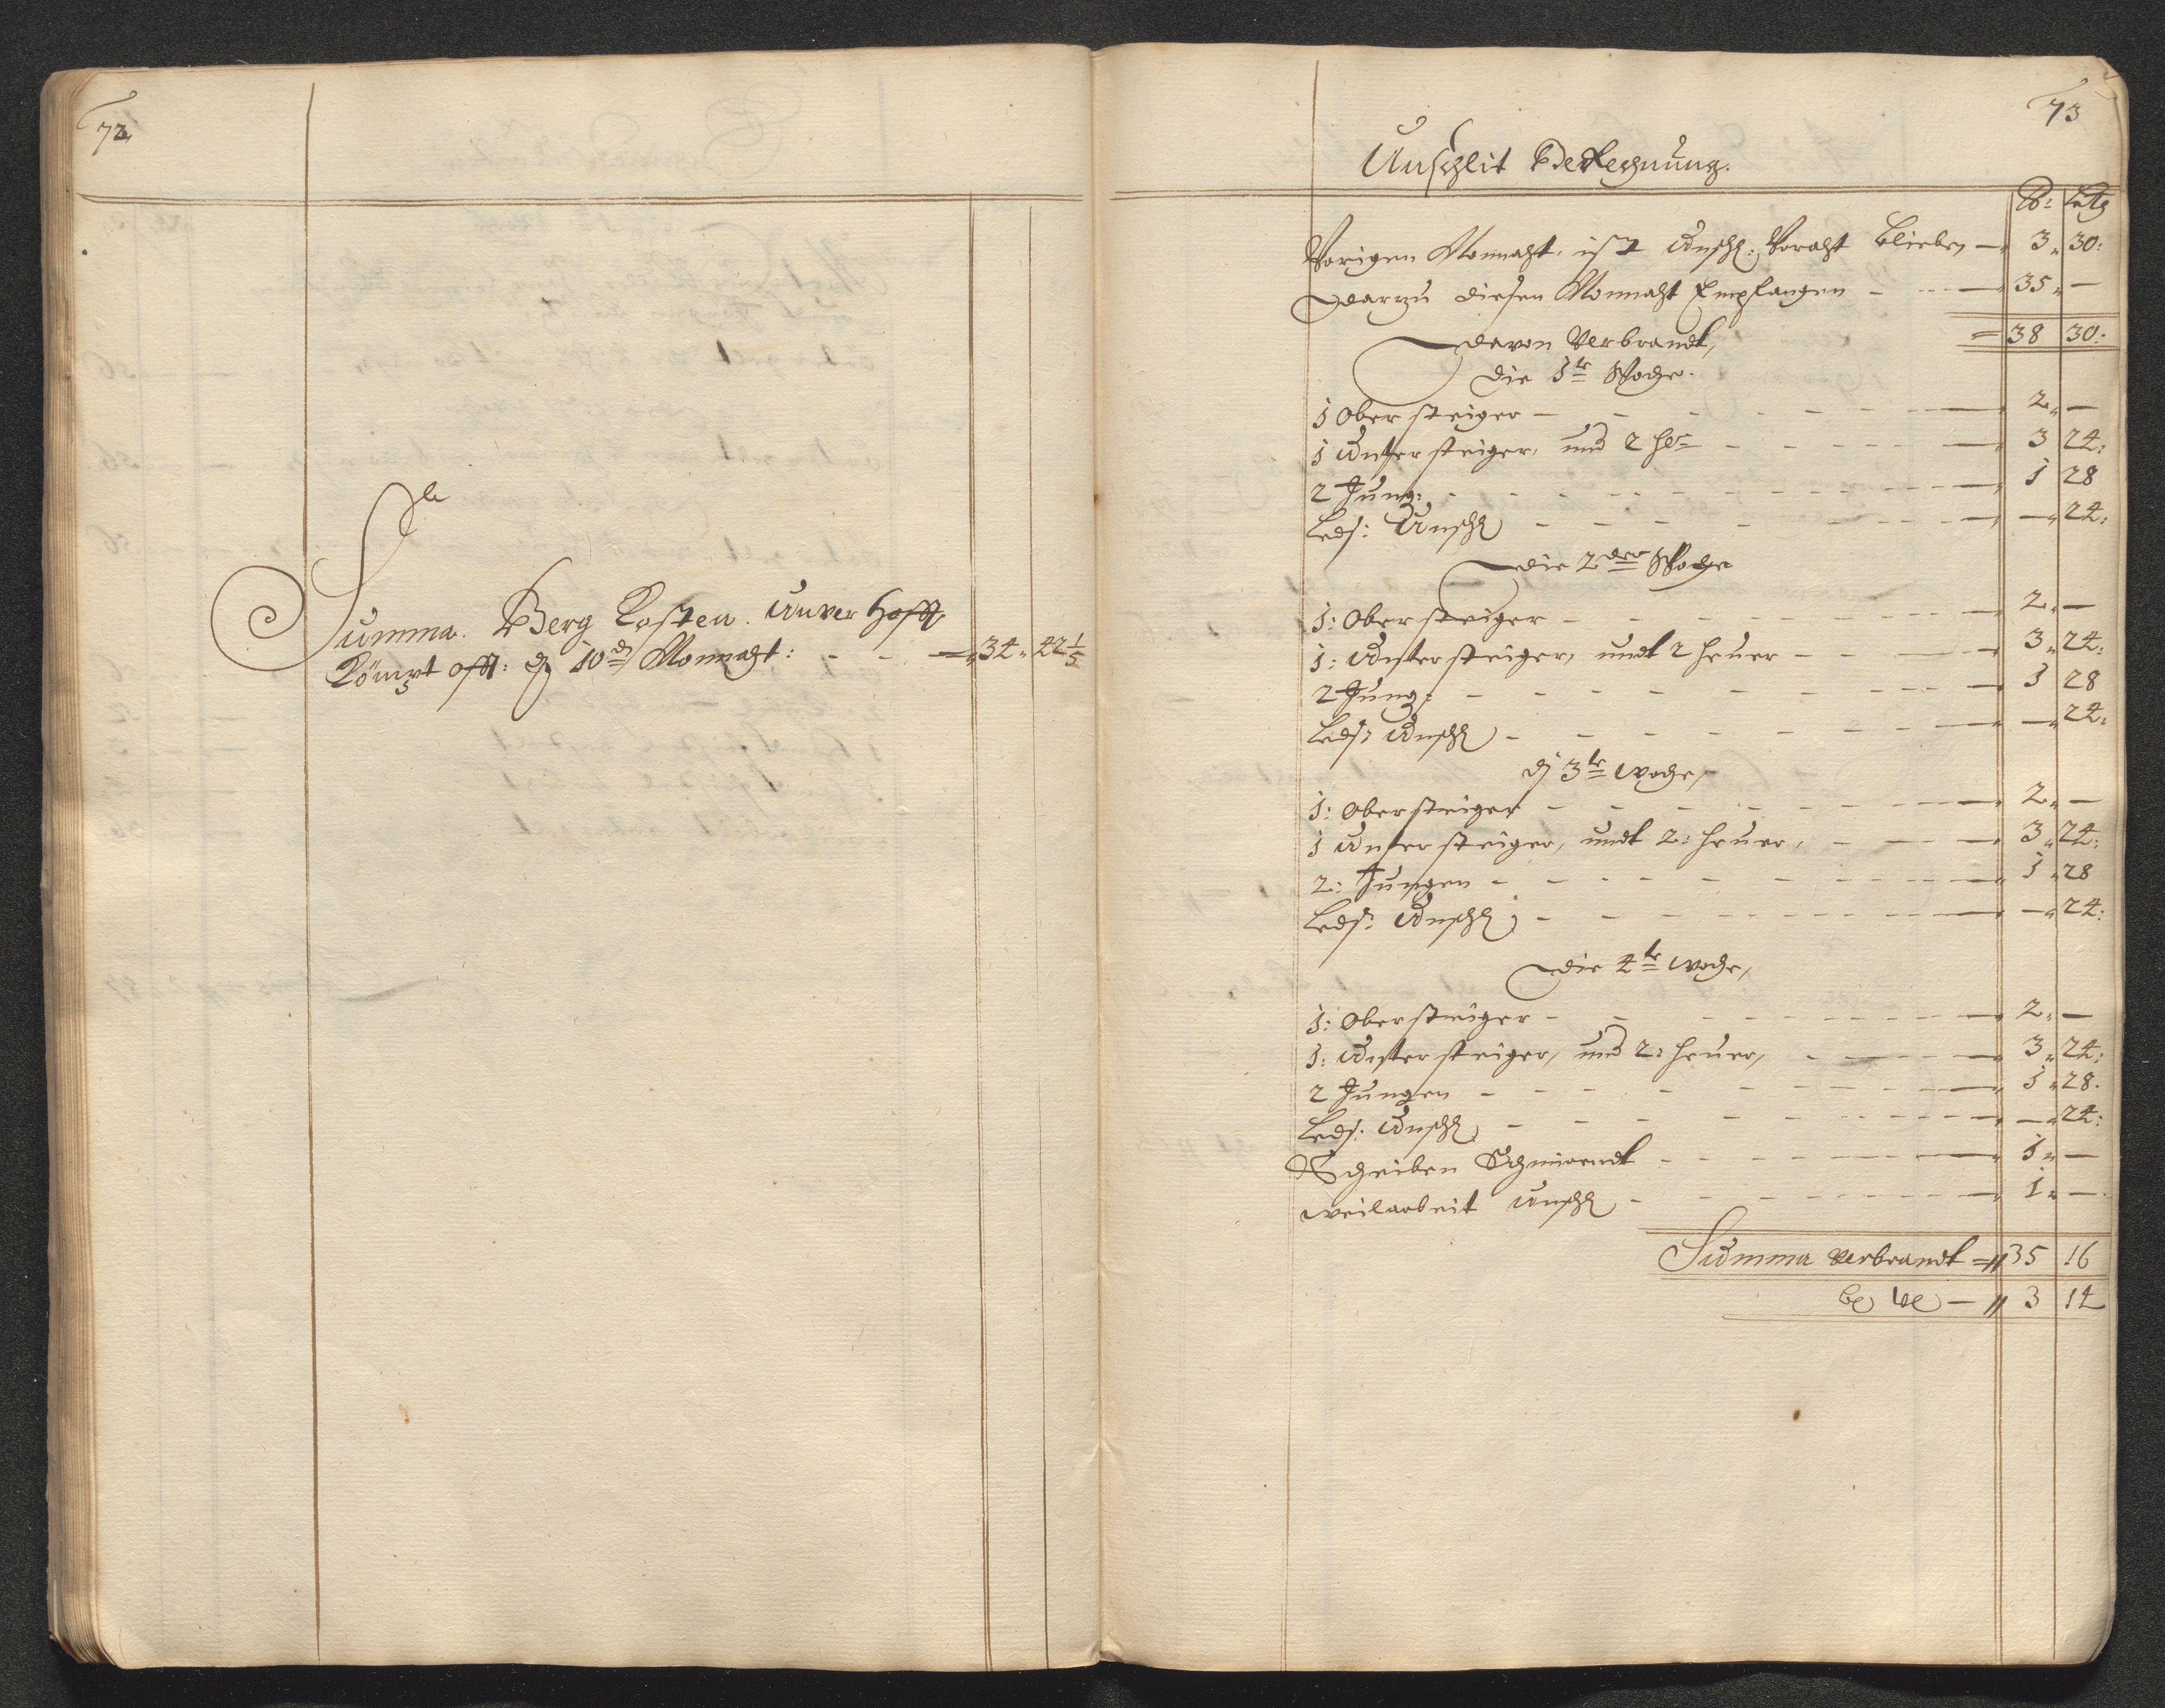 72
Summa. Berg Kosten. Unver hofft
Kömpt offt: dz 10 Monnaht: - - - 34 42 1/5
73
Unschlit Berechnung.
lb: Loth
Vorigen Monnaht, ist Unschl: Voraht blieben - 3 30:
Darzu diesen Monnaht Empfangen - 35 -
= 38 30:
davon Verbrandt,
Die 1te Woche.
1 Obersteiger - 2 -
1 Untersteiger, und 2 - 3 24:
2 Jung: - 1 28
Leds: Unschl - - 24:
die 2der Woche
1: Obersteiger - 2 -
1: Untersteiger, undt 2 heuer - 3 24:
2 Jung: - 1 28
Leds: Unschl - - 24:
d 3te Woche,
1: Obersteiger - 2 -
1 Untersteiger, undt 2: heuer, - 3 24:
2: Jungen - 1 28
Leds: Unschl - - 24:
die 4te Woche,
1: Obersteiger - 2 -
1: Untersteiger, und 2: heuer, - 3 24:
2 Jungen - 1 28.
Leds: Unschl - - 24:
Scheiben Schmierendt - 1 -
weilarbeit Unschl - 1 -
Summa Verbrandt = 35 16
- 3 14